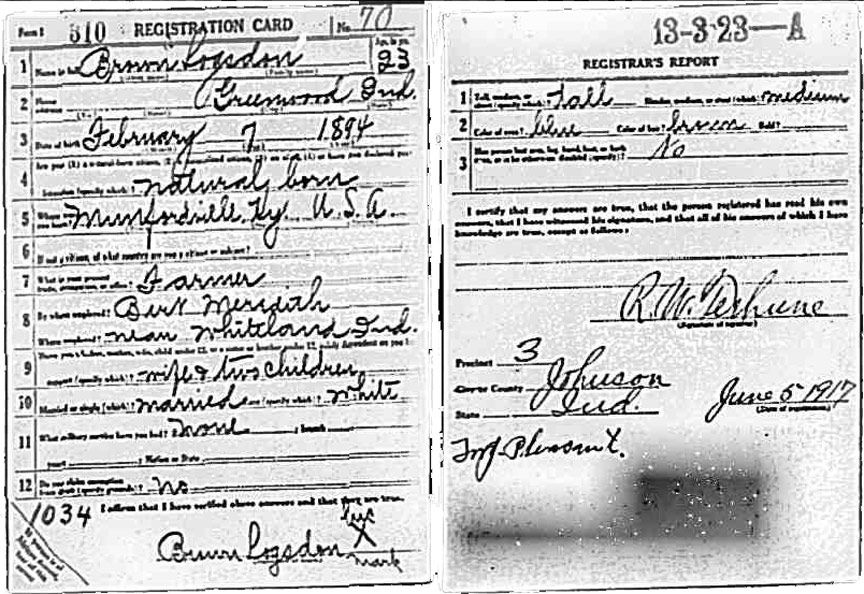 Form 1 510 REGISTRATION CARD No. 70
1 Name in full Brown Logsdon Age, in yrs. 23
(Given name) (Family name)
2 Home address Greenwood Ind.
3 Date of birth February 7 1894
4 Are you (1) a natural-born citizen, (2) a naturalized citizen, (3) an alien, (4) or have you declared your
intention (specify which)? natural born
5 Where were you born? Munfordville Ky. U.S.A
6 If not a citizen, of what country are you a citizen or subject?
7 What is your present trade, occupation, or office? Farmer
8 By whom employed? Bert Meredith
Where employed? near Whiteland Ind.
9 Have you a father, mother, wife, child under 12, or a sister or brother under 12, solely dependent on you for
support (specify which)? wife & two children
10 Married or single (which)? married Race (specify which)? white
11 What military service have you had? Rank none ; branch
years ; Nation or State
12 Do you claim exemption from draft (specify grounds)? no
1034 I affirm that I have verified above answers and that they are true.
his
Brown Logsdon X
mark
13-3-23-A
REGISTRAR'S REPORT
1 Tall, medium, or short (specify which)? Tall Slender, medium, or stout (which)? medium
2 Color of eyes? blue Color of hair? brown Bald?
3 Has person lost arm, leg, hand, foot, or both eyes, or is he otherwise disabled (specify)? No
I certify that my answers are true, that the person registered has read his own
answers, that I have witnessed his signature, and that all of his answers of which I have
knowledge are true, except as follows:
R.W. Terhune
(Signature of registrar)
Precinct 3
City or County Johnson
State Ind. June 5 1917
(Date of registration)